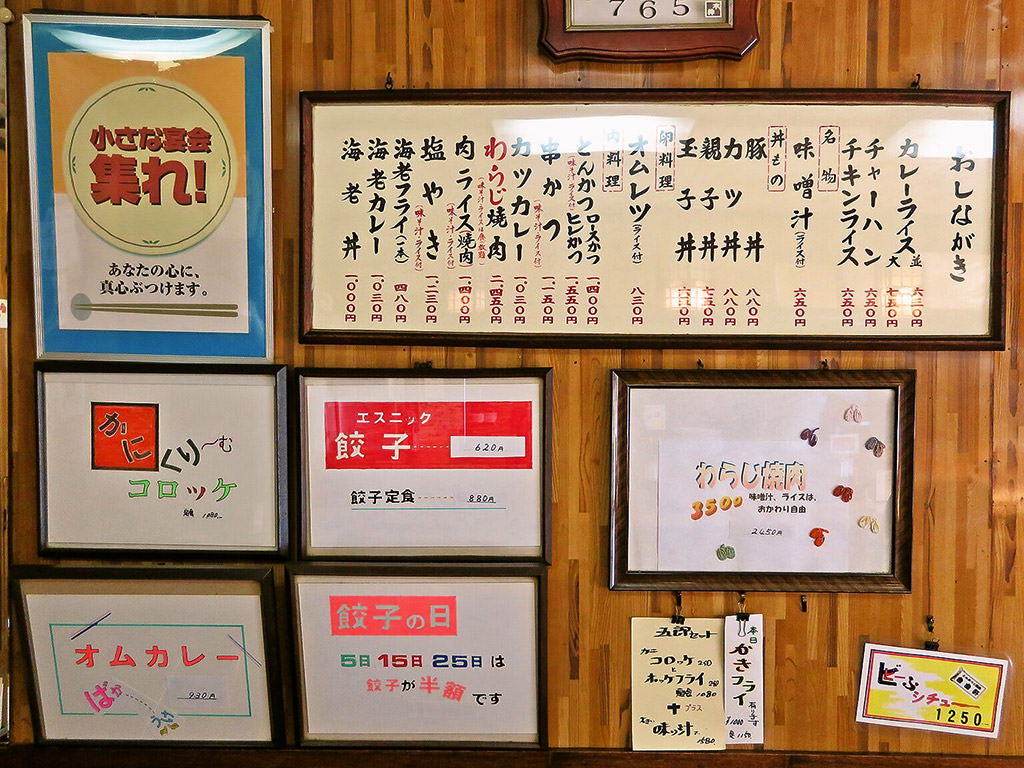 小さな宴会
集れ!
あなたの心に、
真心ぶつけます。
765
おしながき
カレーライス 並 六三〇円
大 七五〇円
チャーハン 六五〇円
チキンライス 六五〇円
名物
味噌汁(ライス付) 六五〇円
丼もの
豚丼 八八〇円
カツ丼 八八〇円
親子丼 七五〇円
玉子丼
卵料理
オムレツ(ライス付) 八三〇円
肉料理
とんかつ ロースかつ 一.四〇〇円
(味そ汁・ライス付) ヒレかつ 一.五五〇円
串かつ(味そ汁・ライス付) 一.一五〇円
カツカレー 一.〇三〇円
わらじ焼肉(味そ汁・ライスは食べ放題) 二.四五〇円
肉ライス(焼肉)(味そ汁・ライス付) 一.一四〇円
塩やき(味そ汁・ライス付) 一.二三〇円
海老フライ(一本) 四八〇円
海老カレー 一.〇三〇円
海老丼 一.〇〇〇円
かに
くり〜む
コロッケ
1080-
エスニック
餃子 620円
餃子定食 880円
わらじ焼肉
350g 味噌汁、ライスは、
おかわり自由
2450円
オムカレー
930円
餃子の日
5日 15日 25日 は
餃子が半額です
セット
カニ
コロッケ
と
ホッケフライ
1080
+プラス
味噌汁で
1580
本日
かきフライ
有ります
¥1000
定 1150
ビーふ
シチュー
1250-